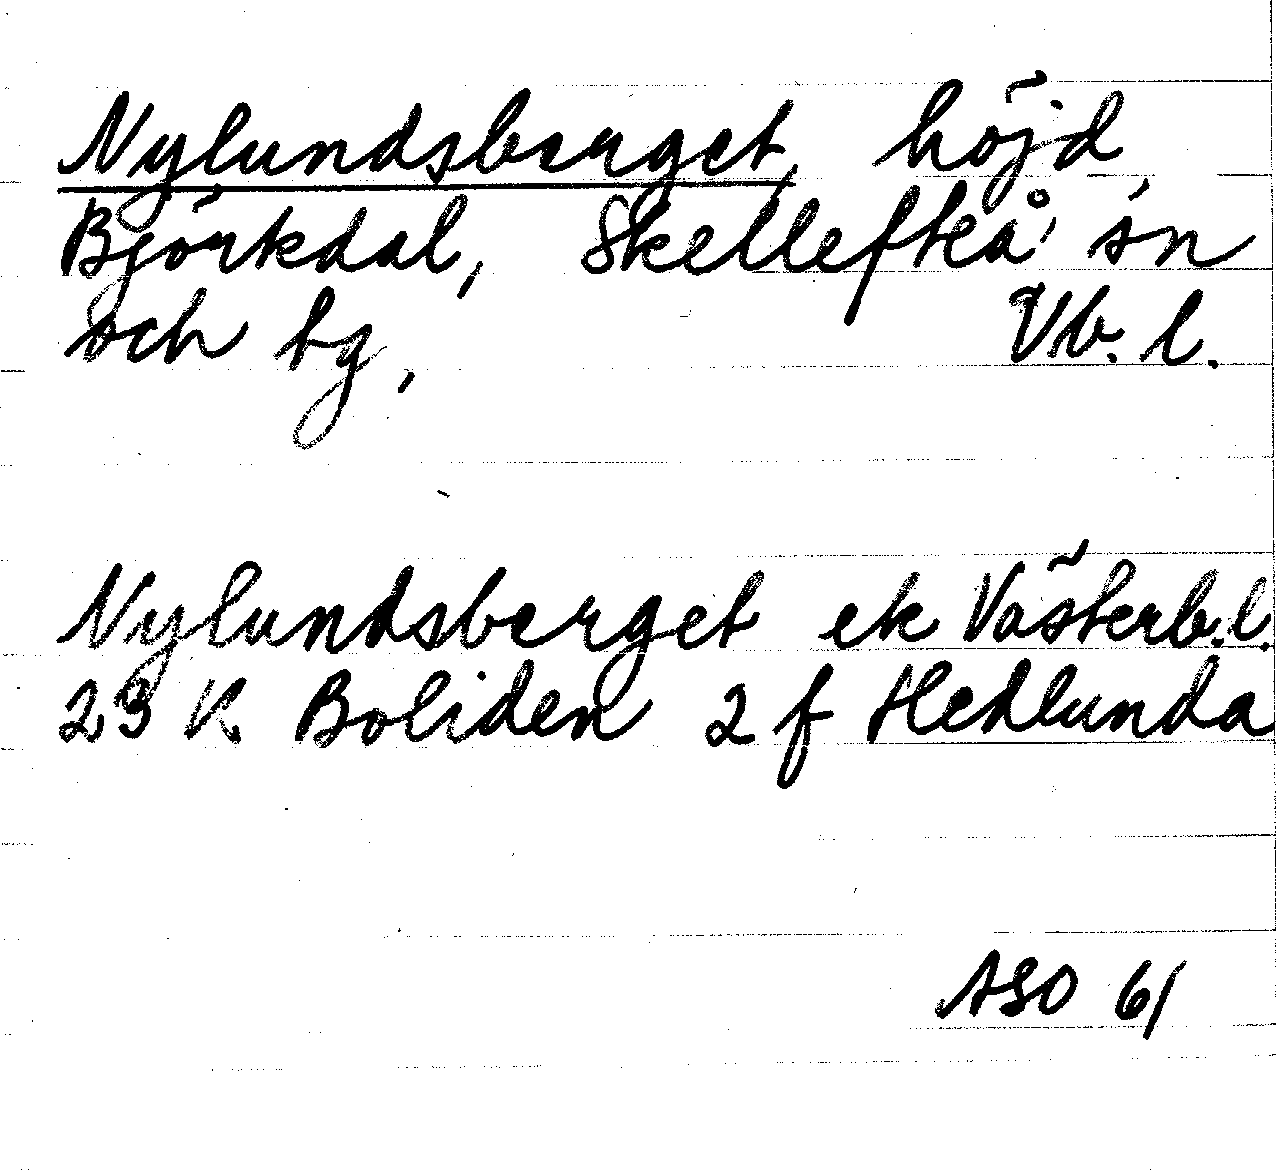 Nylundsberget, höjd,
Björkdal, Skellefteå sn
och tg, Vb. l.
Nylundsberget ek Västerb.l.
23 K Boliden 2 f Hedlunda
ASO 61